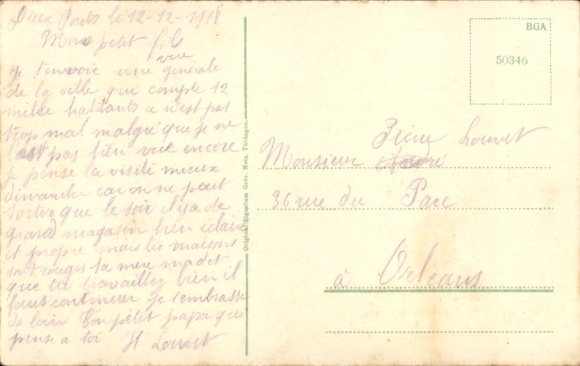 Deux Ponts le 12-12-1918
Mon petit fils
Je t'envoie une vue générale
de la ville qui compte 12
mille habitants ce n'est pas
trop mal malgré que je ne
l'est pas bien vue encore
je pense la visité mieux
dimanche car on ne peut
sortir que le soir il y a de
grand magasin bien éclairé
et propre mais les maisons
sont rouges ta mère m'a dit
que tu travaillez bien il
faut continuer Je t'embrasse
de loin Ton petit papa qui
pense a toi H Louvet
BGA
50346
Original-Eigentum Gebr. Metz, Tübingen.
Pierre Louvet
Monsieur
36 rue du Parc
à Orléans